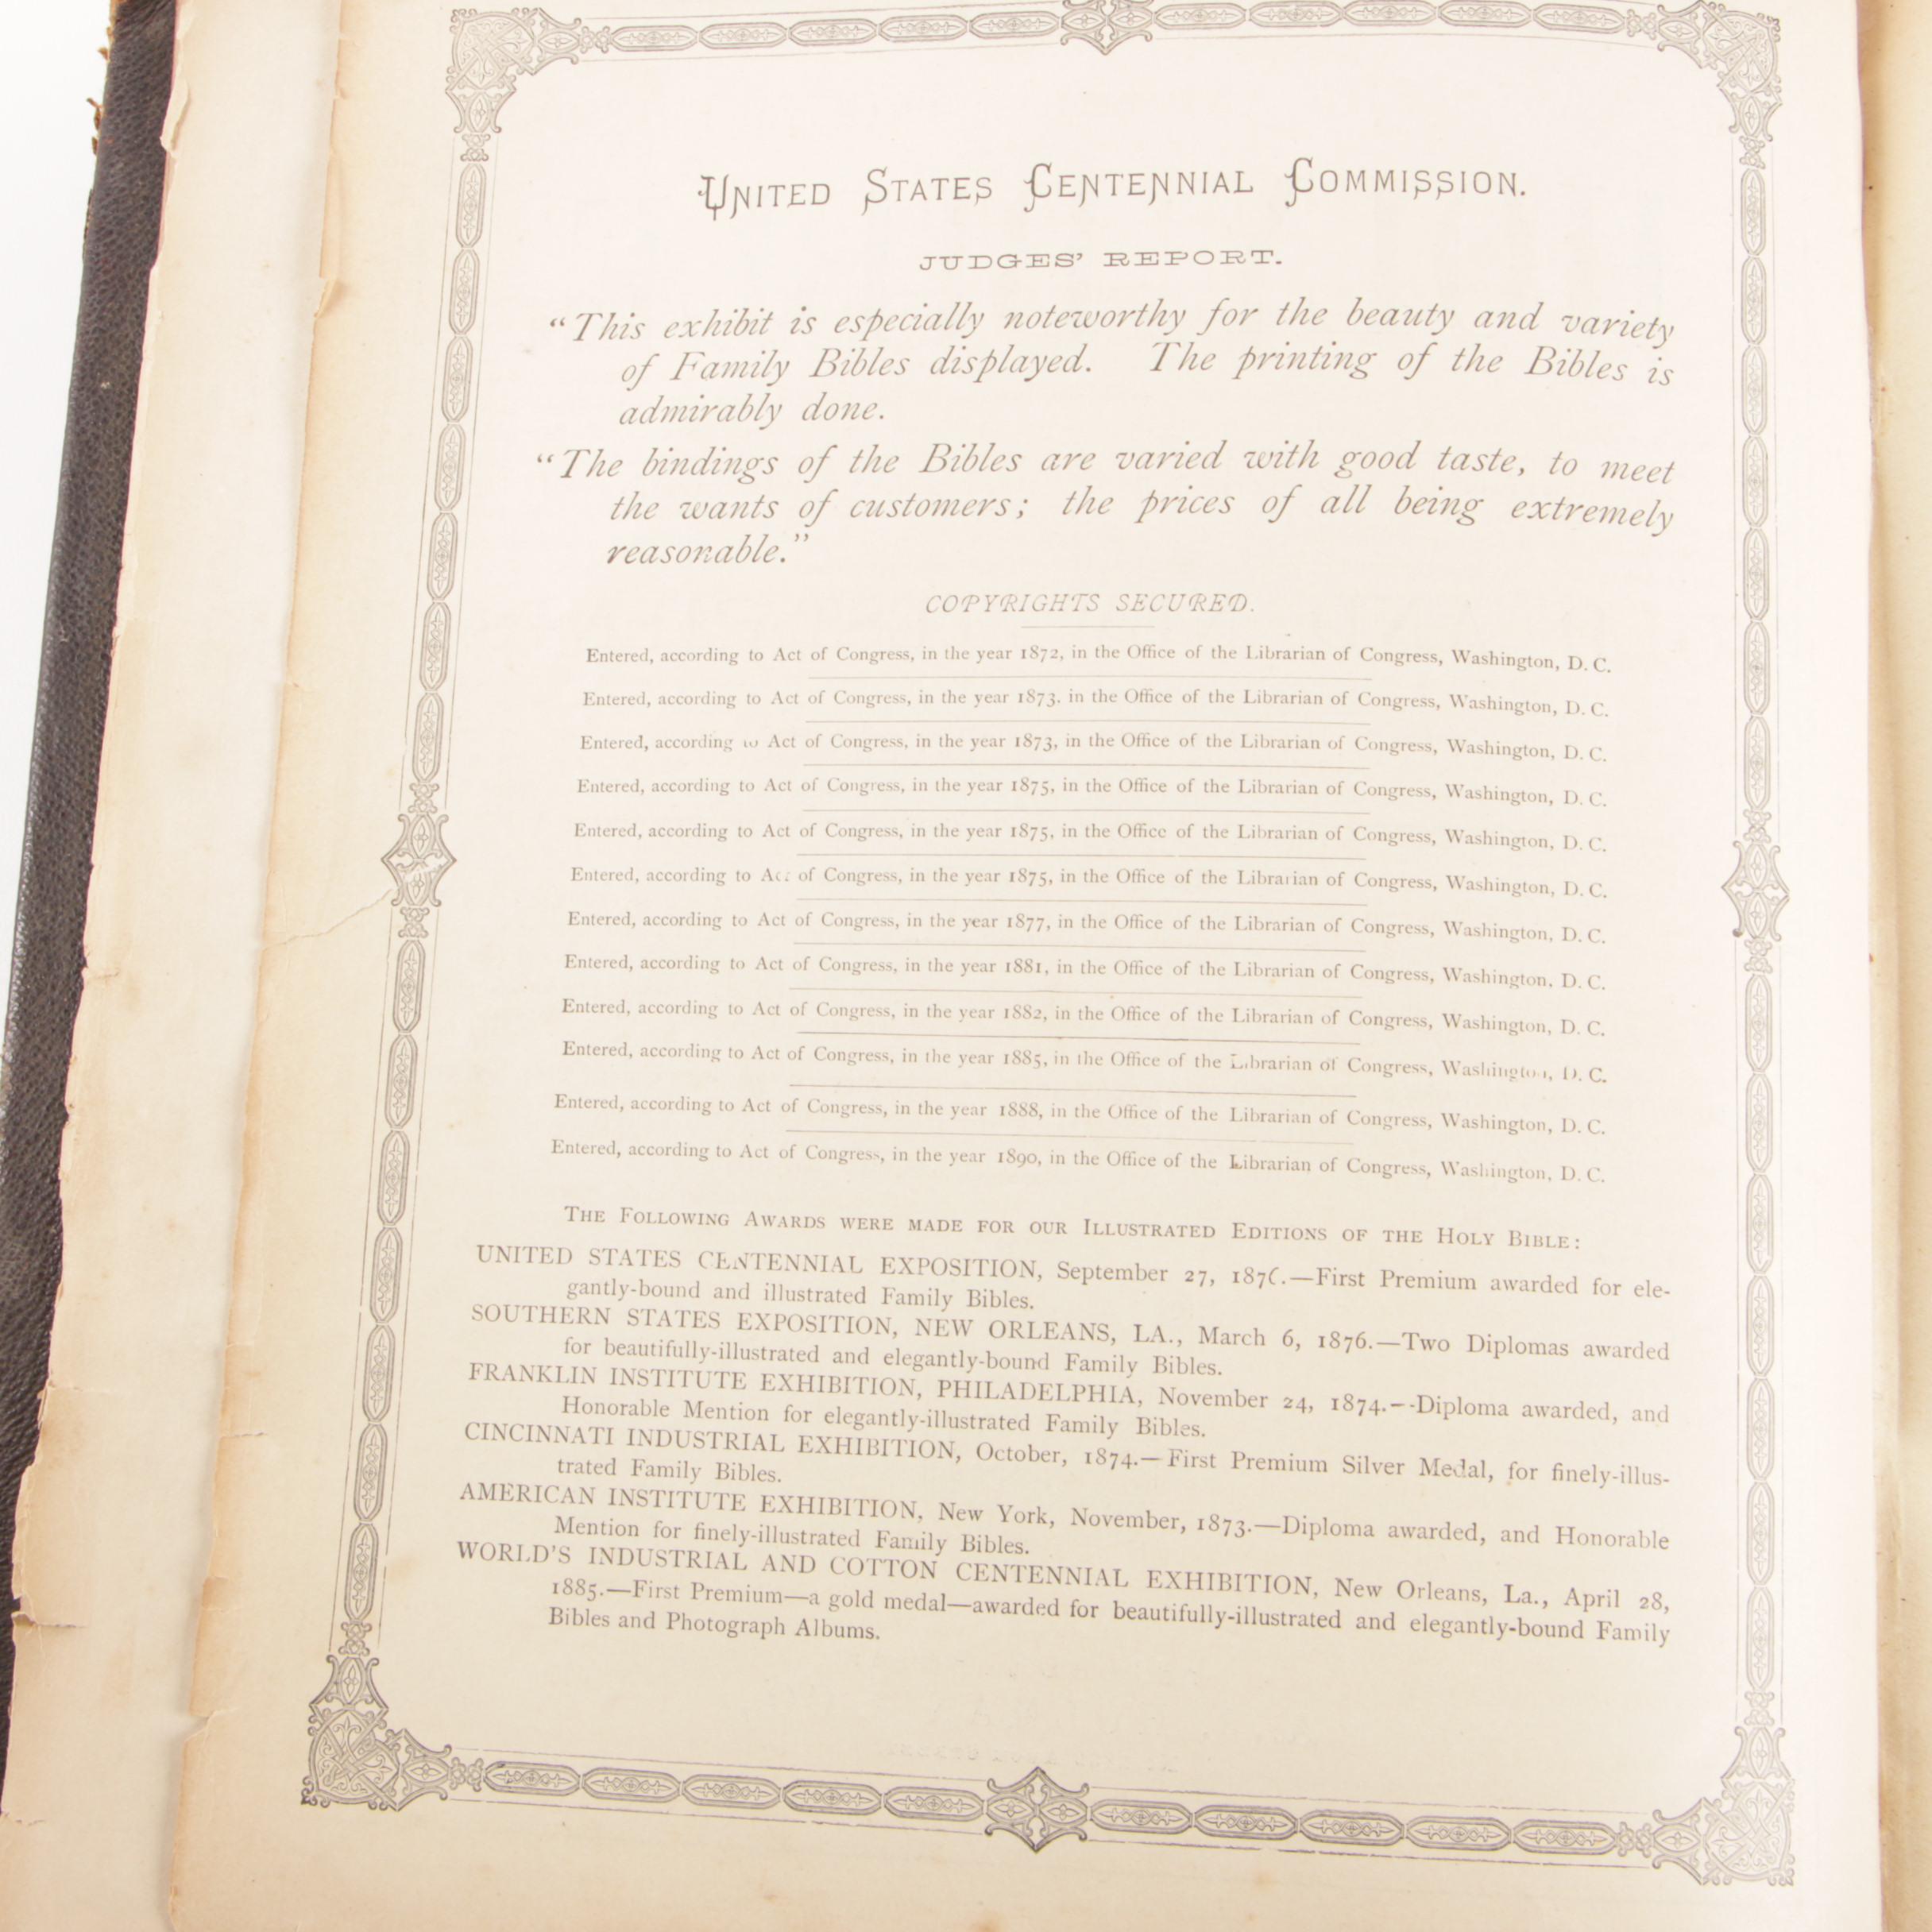 UNITED STATES CENTENNIAL COMMISSION.
JUDGES' REPORT.
"This exhibit is especially noteworthy for the beauty and variety
of Family Bibles displayed. The printing of the Bibles is
admirably done.
"The bindings of the Bibles are varied with good taste, to meet
the wants of customers; the prices of all being extremely
reasonable."
COPYRIGHTS SECURED.
Entered, according to Act of Congress, in the year 1872, in the Office of the Librarian of Congress, Washington, D. C.
Entered, according to Act of Congress, in the year 1873. in the Office of the Librarian of Congress, Washington, D. C.
Entered, according to Act of Congress, in the year 1873, in the Office of the Librarian of Congress, Washington, D. C.
Entered, according to Act of Congress, in the year 1875, in the Office of the Librarian of Congress, Washington, D. C.
Entered, according to Act of Congress, in the year 1875, in the Office of the Librarian of Congress, Washington, D. C.
Entered, according to Act of Congress, in the year 1875, in the Office of the Librarian of Congress, Washington, D. C.
Entered, according to Act of Congress, in the year 1877, in the Office of the Librarian of Congress, Washington, D. C.
Entered, according to Act of Congress, in the year 1881, in the Office of the Librarian of Congress, Washington, D. C.
Entered, according to Act of Congress, in the year 1882, in the Office of the Librarian of Congress, Washington, D. C.
Entered, according to Act of Congress, in the year 1885, in the Office of the Librarian of Congress, Washington, D. C.
Entered, according to Act of Congress, in the year 1888, in the Office of the Librarian of Congress, Washington, D. C.
Entered, according to Act of Congress, in the year 1890, in the Office of the Librarian of Congress, Washington, D. C.
THE FOLLOWING AWARDS WERE MADE FOR OUR ILLUSTRATED EDITIONS OF THE HOLY BIBLE:
UNITED STATES CENTENNIAL EXPOSITION, September 27, 1876.—First Premium awarded for ele-
gantly-bound and illustrated Family Bibles.
SOUTHERN STATES EXPOSITION, NEW ORLEANS, LA., March 6, 1876.—Two Diplomas awarded
for beautifully-illustrated and elegantly-bound Family Bibles.
FRANKLIN INSTITUTE EXHIBITION, PHILADELPHIA, November 24, 1874.--Diploma awarded, and
Honorable Mention for elegantly-illustrated Family Bibles.
CINCINNATI INDUSTRIAL EXHIBITION, October, 1874.—First Premium Silver Medal, for finely-illus-
trated Family Bibles.
AMERICAN INSTITUTE EXHIBITION, New York, November, 1873.—Diploma awarded, and Honorable
Mention for finely-illustrated Family Bibles.
WORLD'S INDUSTRIAL AND COTTON CENTENNIAL EXHIBITION, New Orleans, La., April 28,
1885.—First Premium—a gold medal—awarded for beautifully-illustrated and elegantly-bound Family
Bibles and Photograph Albums.